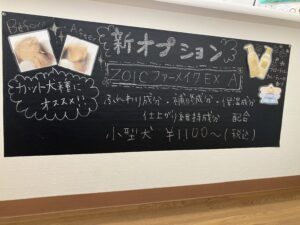 Before
After
新オプション
ZOIC ファーメイク EX A
カット犬種に
オススメ!!
ふんわり成分・補修成分・保湿成分
仕上がり維持成分 配合
小型犬 ¥1100〜(税込)